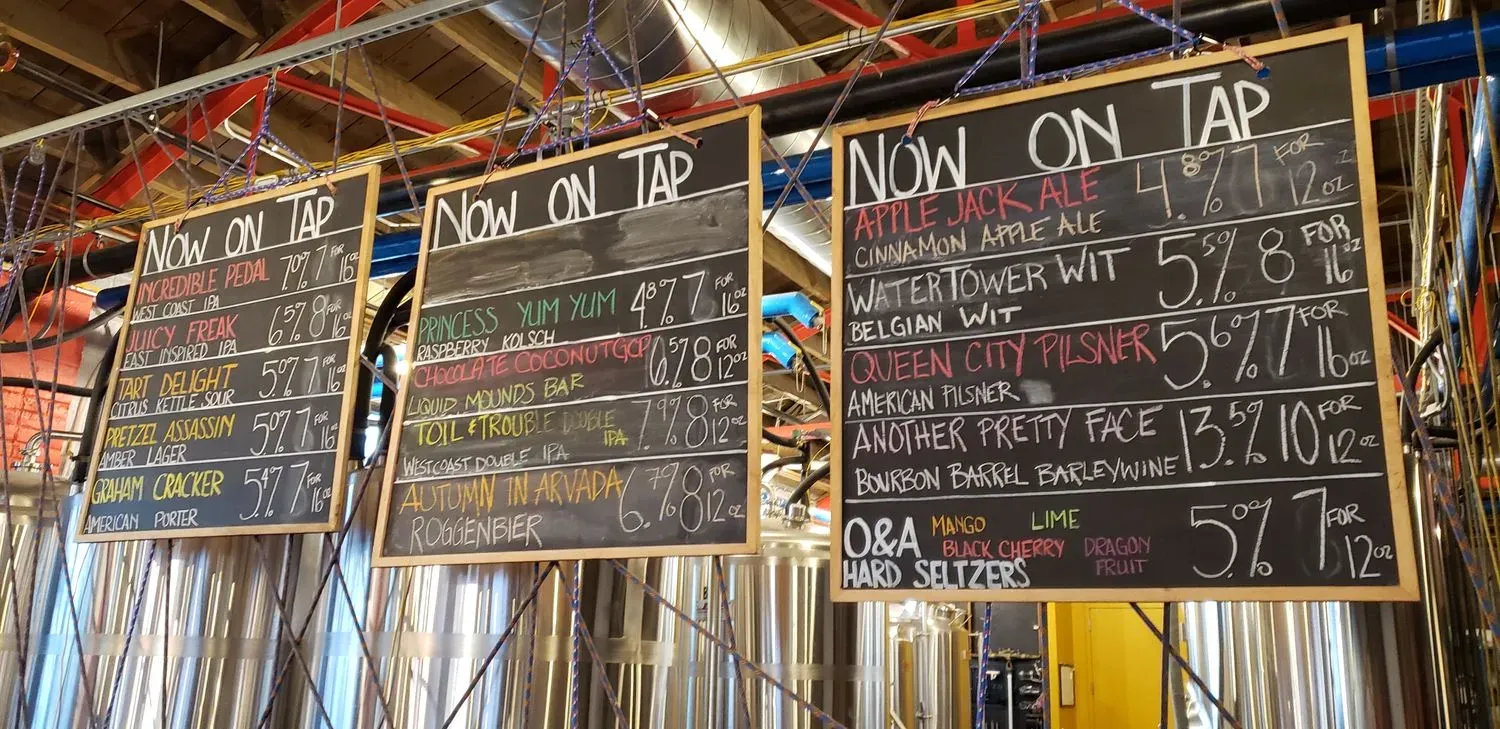 NOW ON TAP
INCREDIBLE PEDAL 7.0% 7 FOR 16oz
WEST COAST IPA
JUICY FREAK 6.5% 8 FOR 16oz
EAST INSPIRED IPA
TART DELIGHT 5.0% 7 FOR 16oz
CITRUS KETTLE SOUR
PRETZEL ASSASSIN 5.0% 7 FOR 16oz
AMBER LAGER
GRAHAM CRACKER 5.4% 7 FOR 16oz
AMERICAN PORTER
NOW ON TAP
PRINCESS YUM YUM 4.8% 7 FOR 16oz
RASPBERRY KOLSCH
CHOCOLATE COCONUT GCP 6.5% 8 FOR 12oz
LIQUID MOUNDS BAR
TOIL & TROUBLE DOUBLE IPA 7.9% 8 FOR 12oz
WESTCOAST DOUBLE IPA
AUTUMN IN ARVADA 6.7% 8 FOR 12oz
ROGGENBIER
NOW ON TAP
APPLE JACK ALE 4.8% 7 FOR 12oz
CINNAMON APPLE ALE
WATERTOWER WIT 5.5% 8 FOR 16oz
BELGIAN WIT
QUEEN CITY PILSNER 5.6% 7 FOR 16oz
AMERICAN PILSNER
ANOTHER PRETTY FACE 13.5% 10 FOR 12oz
BOURBON BARREL BARLEYWINE
O&A MANGO LIME 5.0% 7 FOR 12oz
BLACK CHERRY DRAGON FRUIT
HARD SELTZERS